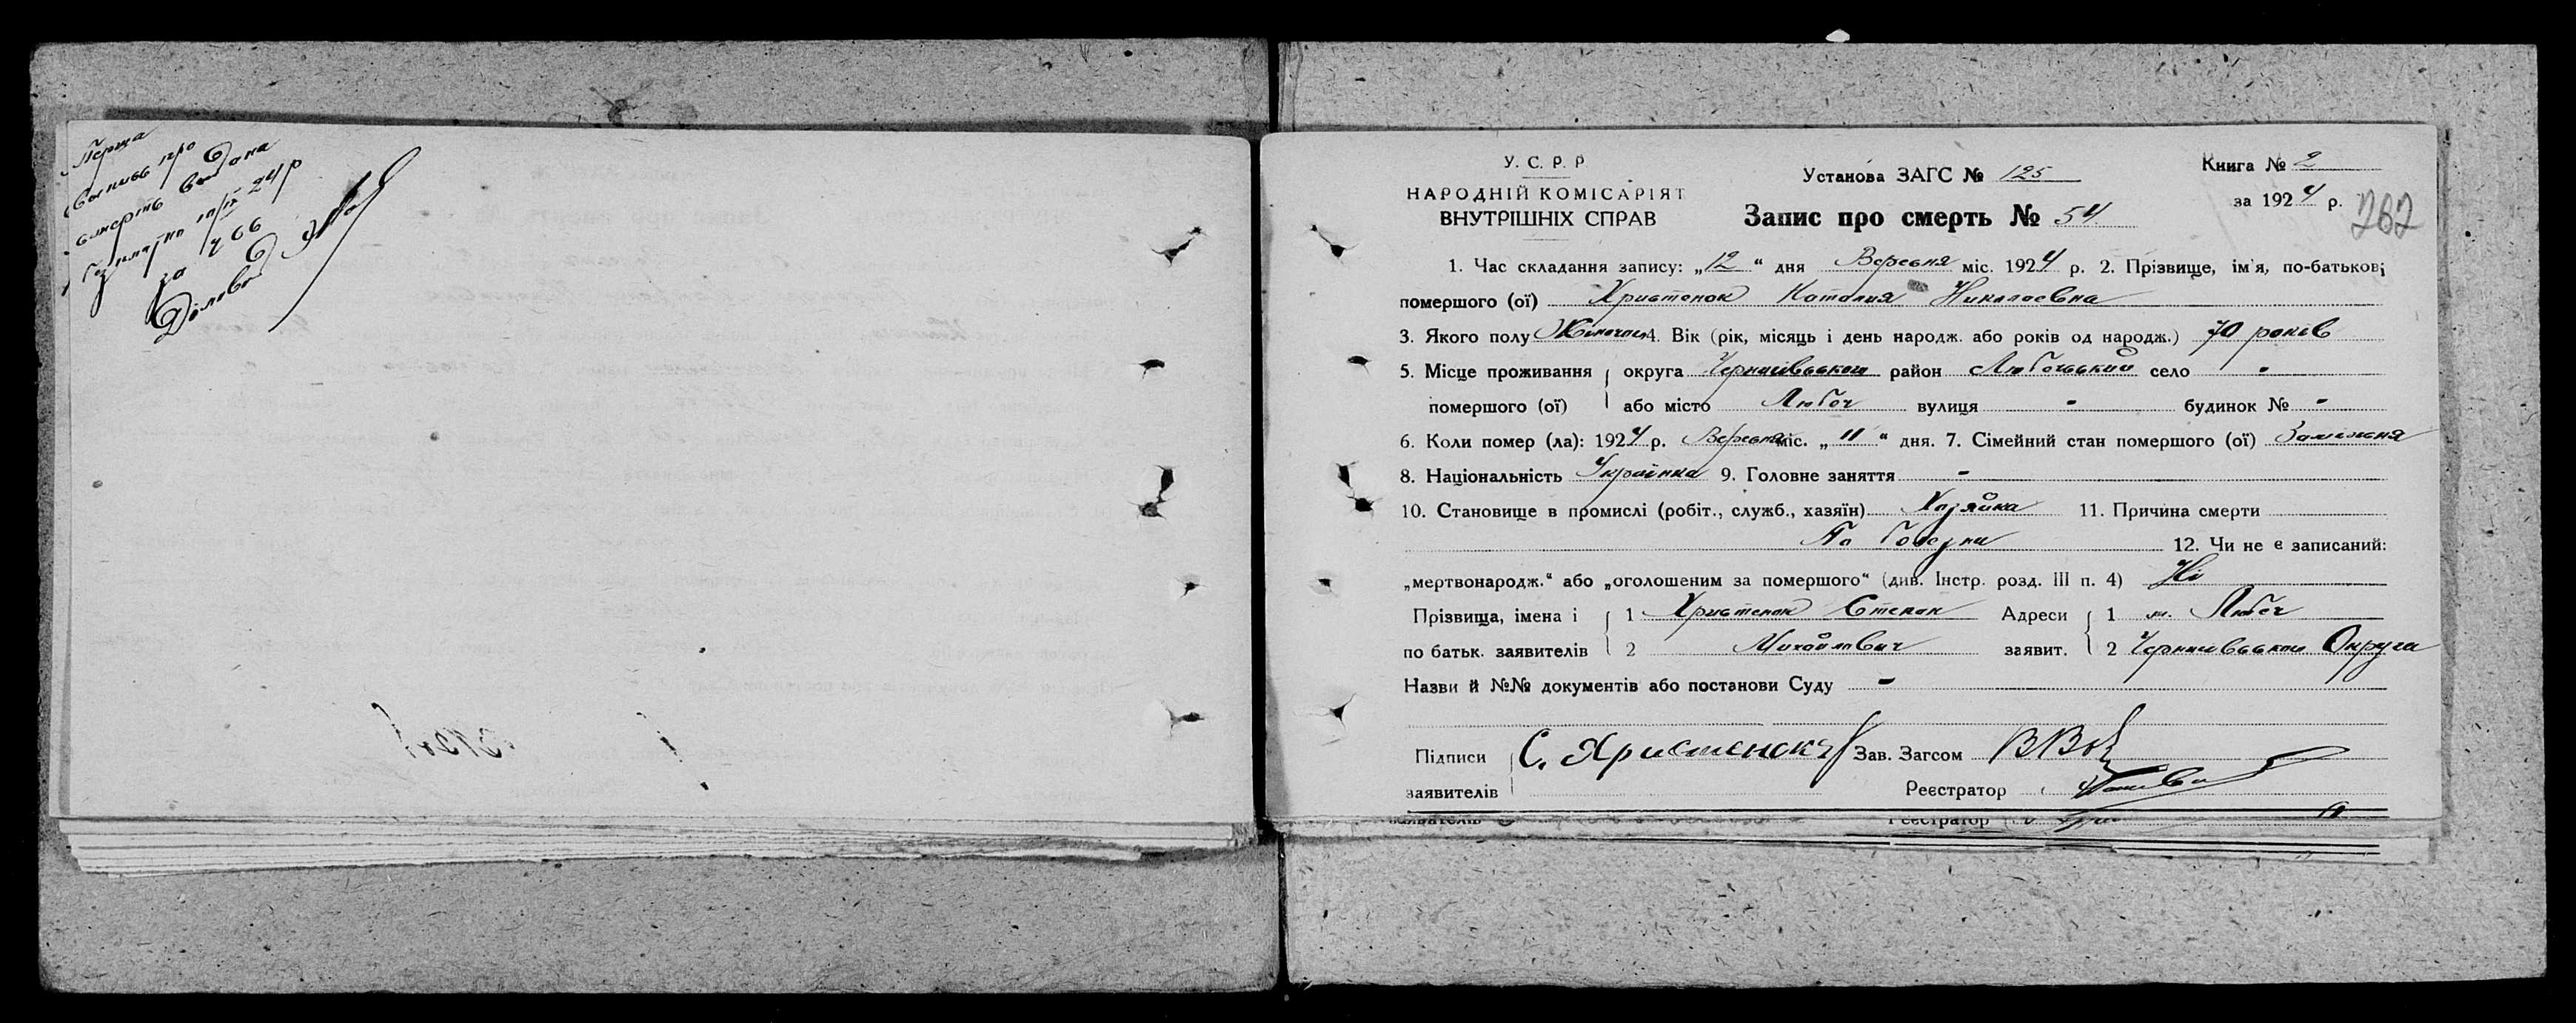 Перша
выпись про
смерть видана
10/IX 24 р
за 766
Діловод
У. С. Р. Р
НАРОДНІЙ КОМІСАРІЯТ
ВНУТРІШНІХ СПРАВ
Установа ЗАГС № 125
Запис про смерть № 54
Книга № 2
за 1924 р.
262
1. Час складання запису: „12“ дня Вересня міс. 1924 р. 2. Прізвище, ім'я, по-батькові
помершого (ої) Христенок Наталия Николаевна
3. Якого полу Жіночої 4. Вік (рік, місяць і день народж. або років од народж.) 70 років
5. Місце проживання округа Чернигівської район Любечський село -
помершого (ої) або місто Любеч вулиця - будинок № -
6. Коли помер (ла): 1924 р. Вересня міс. „11“ дня. 7. Сімейний стан помершого (ої) Замужня
8. Національність Українка 9. Головне заняття -
10. Становище в промислі (робіт., служб., хазяїн) Хазяйка 11. Причина смерти
По болезни 12. Чи не є записаний:
„мертвонародж.“ або „оголошеним за помершого“ (див. Інстр. розд. III п. 4) Ні
Прізвища, імена і 1 Христенок Степан Адреси 1 м. Любеч
по батьк. заявителів 2 Михайлович заявит. 2 Чернигівської Округи
Назви й №№ документів або постанови Суду -
Підписи С. Христенок Зав. Загсом
заявителів Реєстратор
заявителів Реєстратор